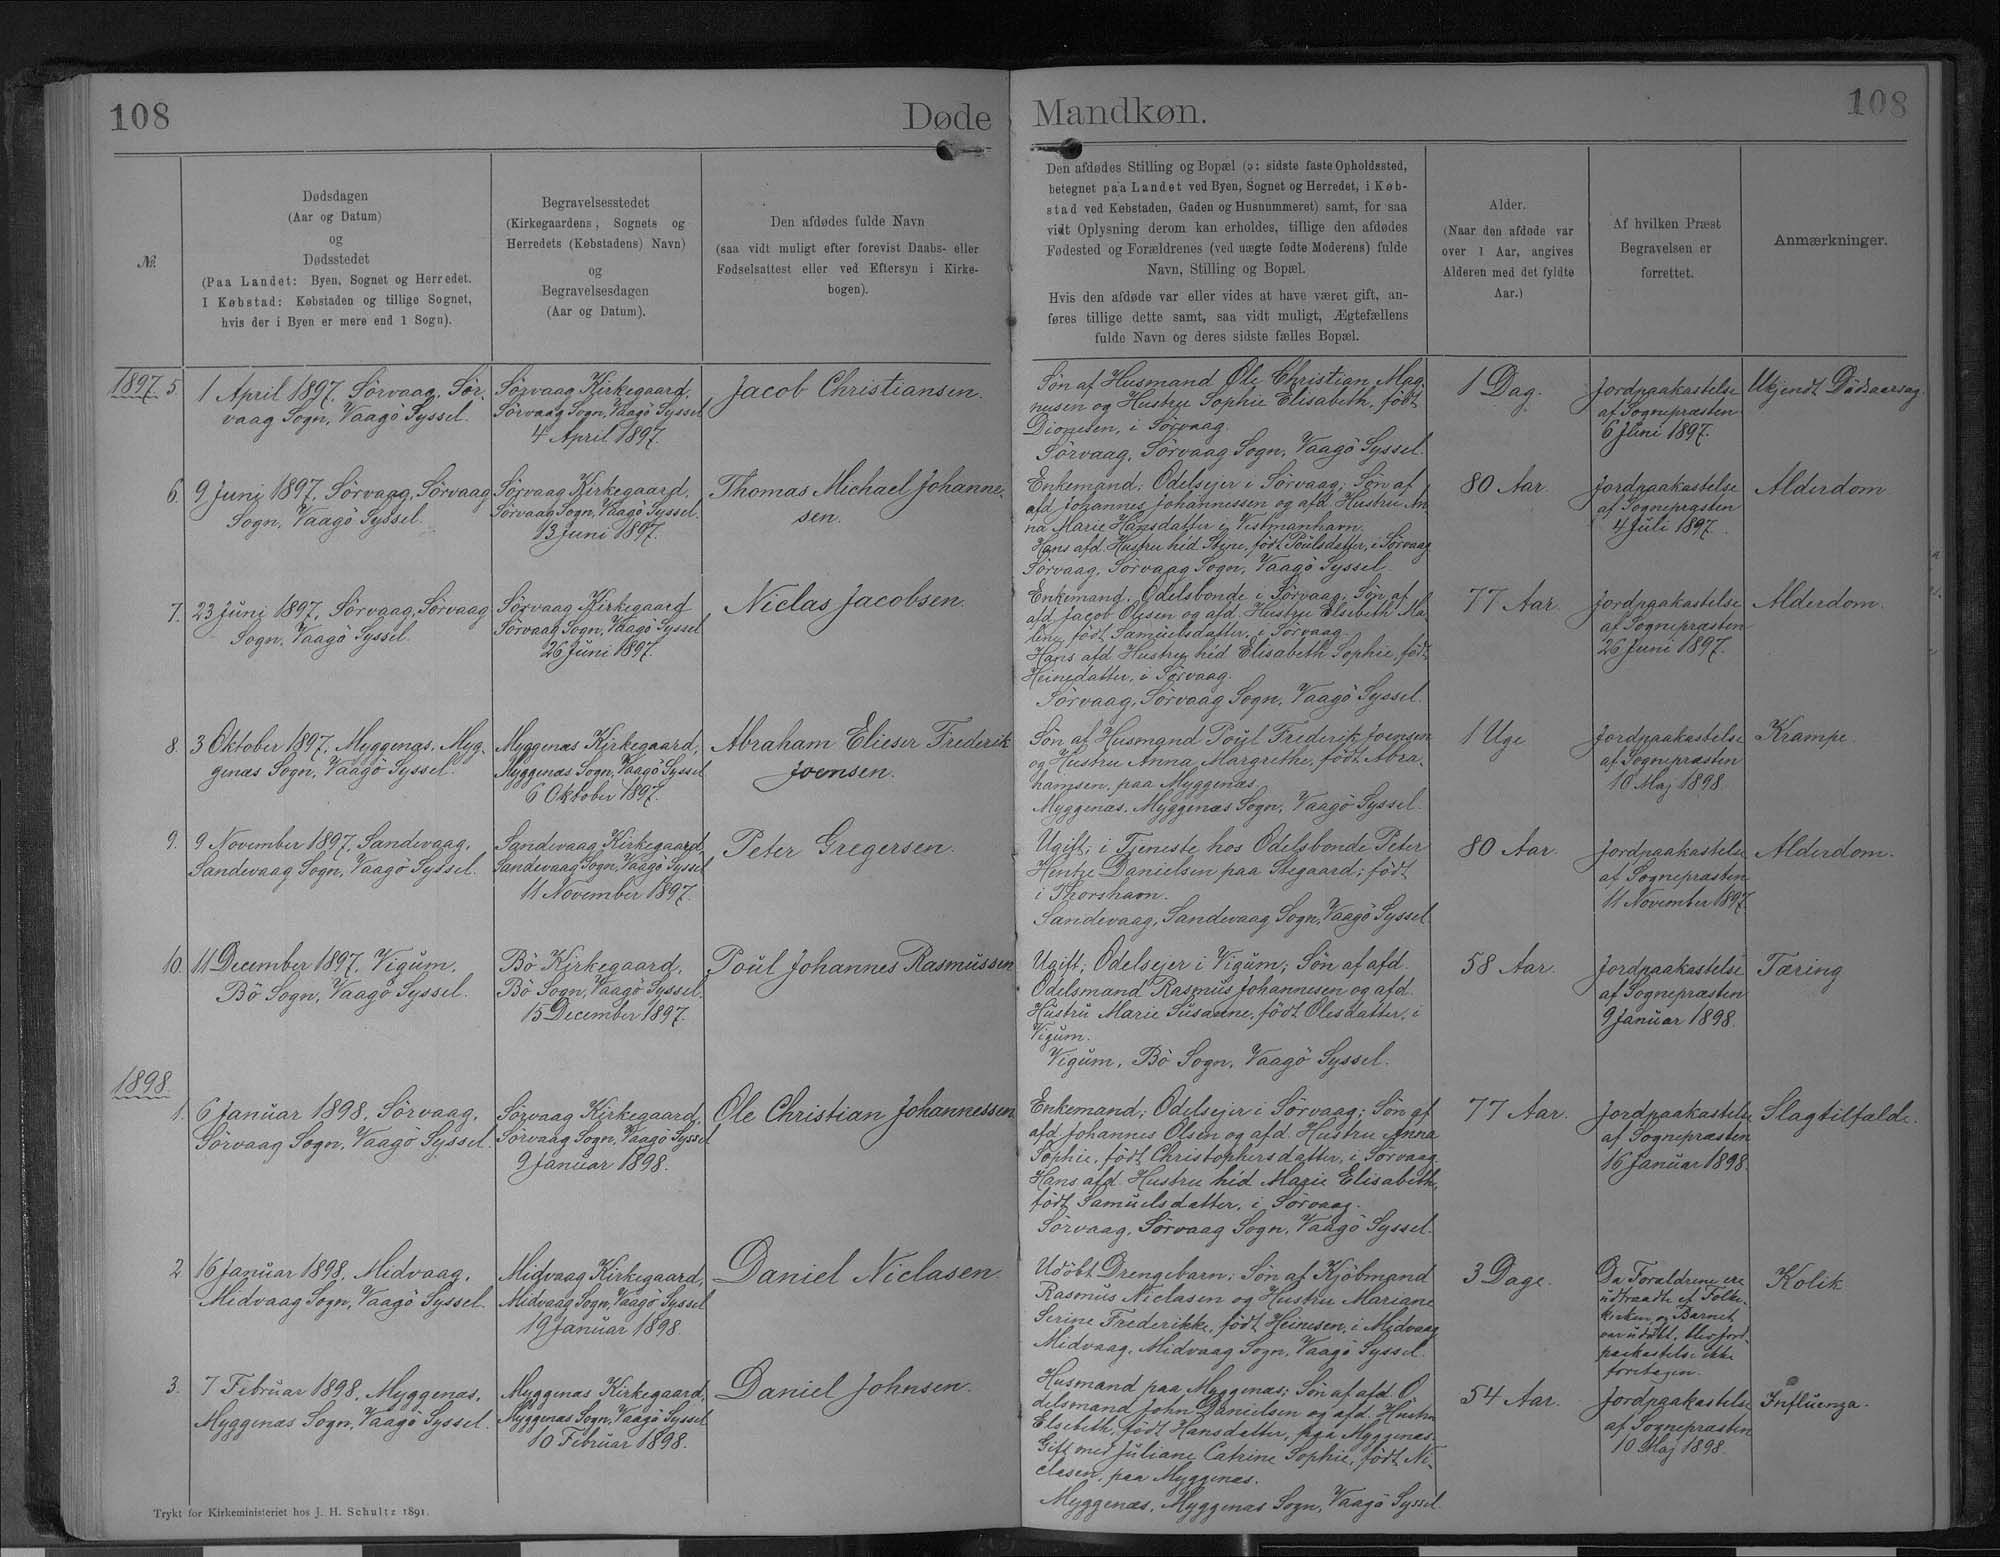 108
Døde
Mandkøn.
108
№.
Dødsdagen
(Aar og Datum)
og
Dødsstedet
(Paa Landet: Byen, Sognet og Herredet.
I Købstad: Købstaden og tillige Sognet,
hvis der i Byen er mere end 1 Sogn).
Begravelsesstedet
(Kirkegaardens, Sognets og
Herredets (Købstadens) Navn)
og
Begravelsesdagen
(Aar og Datum).
Den afdødes fulde Navn
(saa vidt muligt efter forevist Daabs- eller
Fødselsattest eller ved Eftersyn i Kirke-
bogen).
Den afdødes Stilling og Bopæl (ɔ: sidste faste Opholdssted,
betegnet paa Landet ved Byen, Sognet og Herredet, i Køb-
stad ved Købstaden, Gaden og Husnummeret) samt, for saa
vidt Oplysning derom kan erholdes, tillige den afdødes
Fødested og Forældrenes (ved uægte fødte Moderens) fulde
Navn, Stilling og Bopæl.
Hvis den afdøde var eller vides at have været gift, an-
føres tillige dette samt, saa vidt muligt, Ægtefællens
fulde Navn og deres sidste fælles Bopæl.
Alder.
(Naar den afdøde var
over 1 Aar, angives
Alderen med det fyldte
Aar.)
Af hvilken Præst
Begravelsen er
forrettet.
Anmærkninger.
1897. 5.
1 April 1897. Sörvaag, Sör-
vaag Sogn, Vaagö Syssel.
Sörvaag Kirkegaard,
Sörvaag Sogn, Vaagö Syssel
4 April 1897.
Jacob Christiansen.
Sön af Husmand Ole Christian Mag-
nusen og Hustru Sophie Elisabeth, född
Dionesen, i Sörvaag.
Sörvaag, Sörvaag Sogn, Vaagö Syssel.
1 Dag.
Jordpaakastelse
af Sognepræsten
6 Juni 1897.
Ukjendt Dödsaarsag.
6.
9 Juni 1897. Sörvaag, Sörvaag
Sogn, Vaagö Syssel.
Sörvaag Kirkegaard,
Sörvaag Sogn, Vaagö Syssel.
13 Juni 1897.
Thomas Michael Johanne-
sen.
Enkemand; Odelsejer i Sörvaag; Sön af
afd. Johannes Johannessen og afd. Hustru An-
na Marie Hansdatter i Vestmanhavn.
Hans afd. Hustru hed Stine, födt Poulsdatter, i Sörvaag
Sörvaag, Sörvaag Sogn, Vaagö Syssel.
80 Aar.
Jordpaakastelse
af Sognepræsten
4 Juli 1897.
Alderdom
7.
23 Juni 1897. Sörvaag, Sörvaag
Sogn, Vaagö Syssel.
Sörvaag Kirkegaard
Sörvaag Sogn, Vaagö Syssel
26 Juni 1897.
Niclas Jacobsen.
Enkemand. Odelsbonde i Sörvaag; Sön af
afd. Jacob Olesen og afd. Hustru Elsebeth Ma-
lene, födt Samuelsdatter, i Sörvaag.
Hans afd. Hustru hed Elisabeth Sophie, födt
Heinesdatter, i Sörvaag.
Sörvaag, Sörvaag Sogn, Vaagö Syssel.
77 Aar
Jordpaakastelse
af Sognepræsten
26 Juni 1897.
Alderdom.
8.
3 Oktober 1897. Myggenæs, Myg-
genæs Sogn, Vaagö Syssel.
Myggenæs Kirkegaard,
Myggenæs Sogn, Vaagö Syssel
6 Oktober 1897.
Abraham Elieser Frederik
Joensen.
Sön af Husmand Poul Frederik Joensen
og Hustru Anna Margrethe, födt Abra-
hamsen, paa Myggenæs.
Myggenæs, Myggenæs Sogn, Vaagö Syssel.
1 Uge
Jordpaakastelse
af Sognepræsten
10 Maj 1898.
Krampe.
9.
9 November 1897. Sandevaag,
Sandevaag Sogn, Vaagö Syssel.
Sandevaag Kirkegaard,
Sandevaag Sogn, Vaagö Syssel
11 November 1897.
Peter Gregersen.
Ugift; i Tjeneste hos Odelsbonde Peter
Hentze Danielsen paa Stegaard; födt
i Thorshavn.
Sandevaag, Sandevaag Sogn, Vaagö Syssel
80 Aar.
Jordpaakastelse
af Sognepræsten
11 November 1897
Alderdom.
10.
11 December 1897. Vigum,
Bö Sogn, Vaagö Syssel.
Bö Kirkegaard,
Bö Sogn, Vaagö Syssel.
15 December 1897.
Poul Johannes Rasmussen
Ugift; Odelsejer i Vigum; Sön af afd.
Odelsmand Rasmus Johannesen og afd.
Hustru Marie Susanne, födt Olesdatter, i
Vigum.
Vigum, Bö Sogn, Vaagö Syssel.
58 Aar.
Jordpaakastelse
af Sognepræsten
9 Januar 1898.
Tæring
1898.
1.
6 Januar 1898. Sörvaag,
Sörvaag Sogn, Vaagö Syssel.
Sörvaag Kirkegaard,
Sörvaag Sogn, Vaagö Syssel
9 Januar 1898.
Ole Christian Johannessen
Enkemand; Odelsejer i Sörvaag; Sön af
afd. Johannes Olsen og afd. Hustru Anna
Sophie, födt Christophersdatter, i Sörvaag
Hans afd. Hustru hed Marie Elisabeth,
födt Samuelsdatter, i Sörvaag.
Sörvaag, Sörvaag Sogn, Vaagö Syssel.
77 Aar.
Jordpaakastelse
af Sognepræsten
16 Januar 1898.
Slagtilfælde.
2
16 Januar 1898. Midvaag,
Midvaag Sogn, Vaagö Syssel.
Midvaag Kirkegaard,
Midvaag Sogn, Vaagö Syssel
19 Januar 1898.
Daniel Niclasen
Udöbt Drengebarn; Sön af Kjöbmand
Rasmus Niclasen og Hustru Mariane
Serine Frederikke, födt Heinesen, i Midvaag
Midvaag, Midvaag Sogn, Vaagö Syssel.
3 Dage.
Da Forældrene ere
udtraadte af Folke-
kirken, og Barnet
var udöbt, blev Jord-
paakastelse ikke
foretagen.
Kolik
3.
7 Februar 1898. Myggenæs,
Myggenæs Sogn, Vaagö Syssel.
Myggenæs Kirkegaard,
Myggenæs Sogn, Vaagö Syssel
10 Februar 1898.
Daniel Johnsen.
Husmand paa Myggenæs; Sön af afd. O-
delsmand John Danielsen og afd. Hustru
Elsebeth, födt Hansdatter, paa Myggenæs.
Gift med Juliane Catrine Sophie, födt Ni-
clasen, paa Myggenæs.
Myggenæs, Myggenæs Sogn, Vaagö Syssel.
54 Aar.
Jordpaakastelse
af Sognepræsten
10 Maj 1898
Influenza.
Trykt for Kirkeministeriet hos J. H. Schultz 1891.